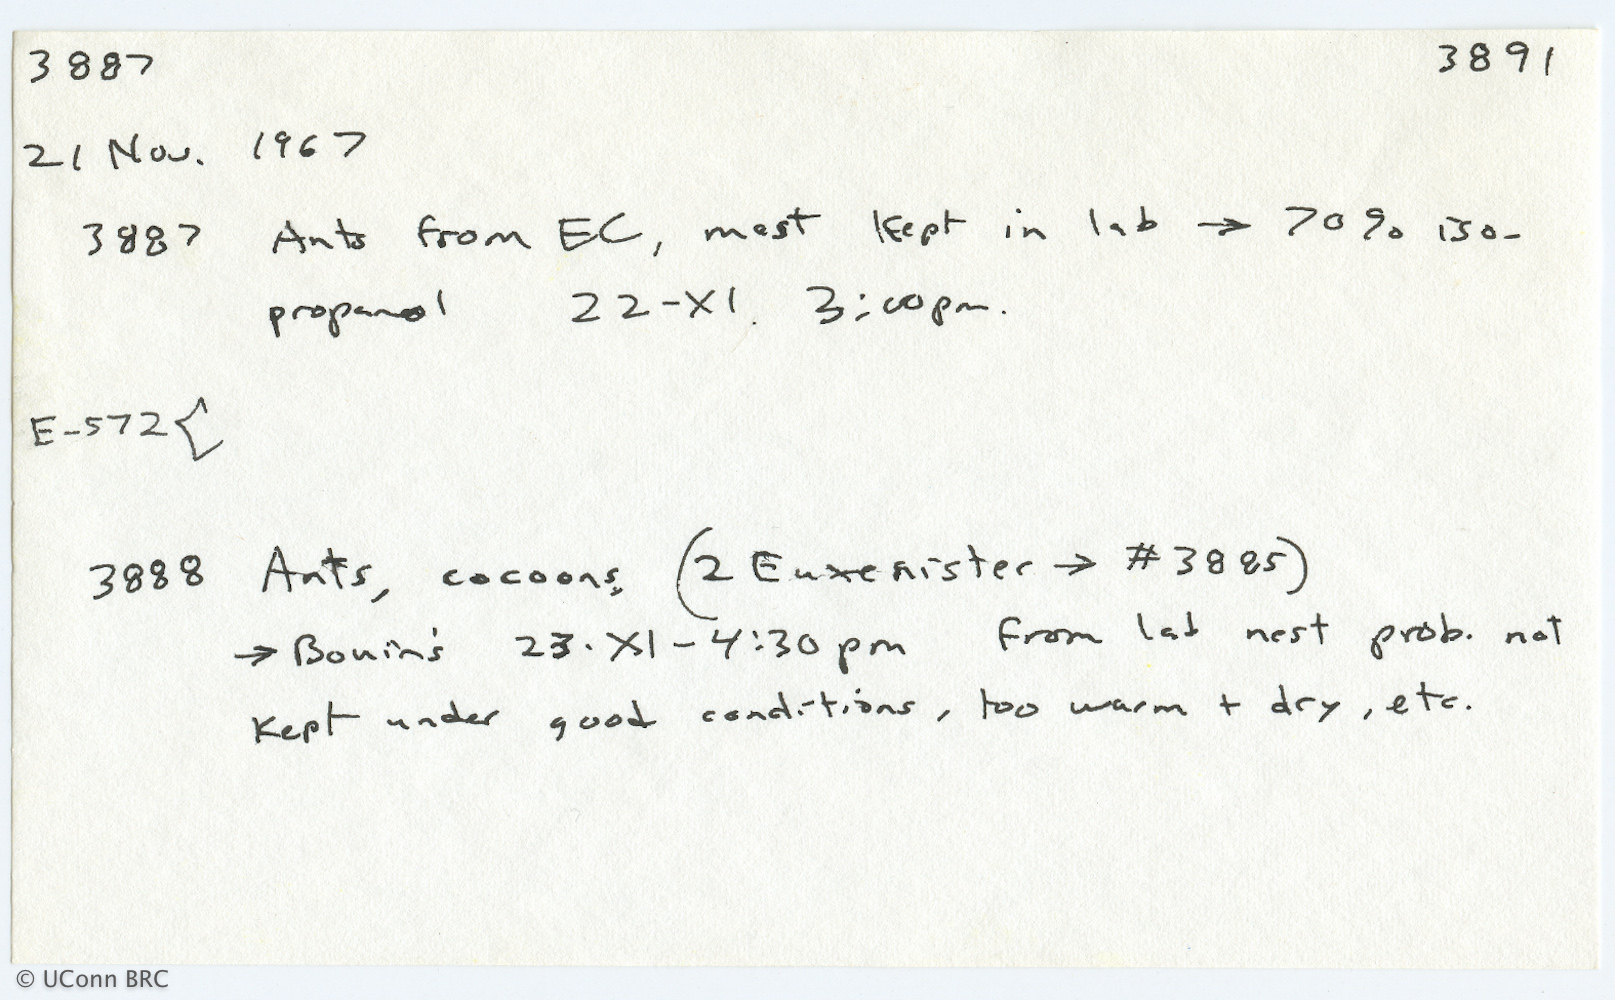 3887 3891
21 Nov. 1967
3887 Ants from EC, most kept in lab → 70% iso-
propanol 22-XI. 3:00pm.
E-572{
3888 Ants, cocoons, (2 Euxenister → #3885)
→ Bouin's 23.XI-4:30 pm from lab nest prob. not
kept under good conditions, too warm + dry, etc.
© UConn BRC